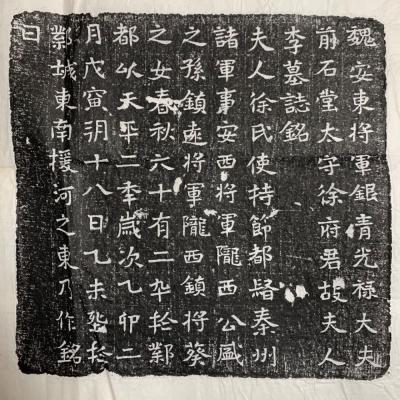 魏安東將軍銀青光祿大夫
前石堂太守徐府君故夫人
李墓誌銘
夫人徐氏使持節都督秦州
諸軍事安西將軍隴西公盛
之孫鎮遠將軍隴西鎮將葵
之女春秋六十有二卒於鄴
都以天平二年歲次乙卯二
月戊寅朔十八日乙未塟於
鄴城東南援河之東乃作銘
曰